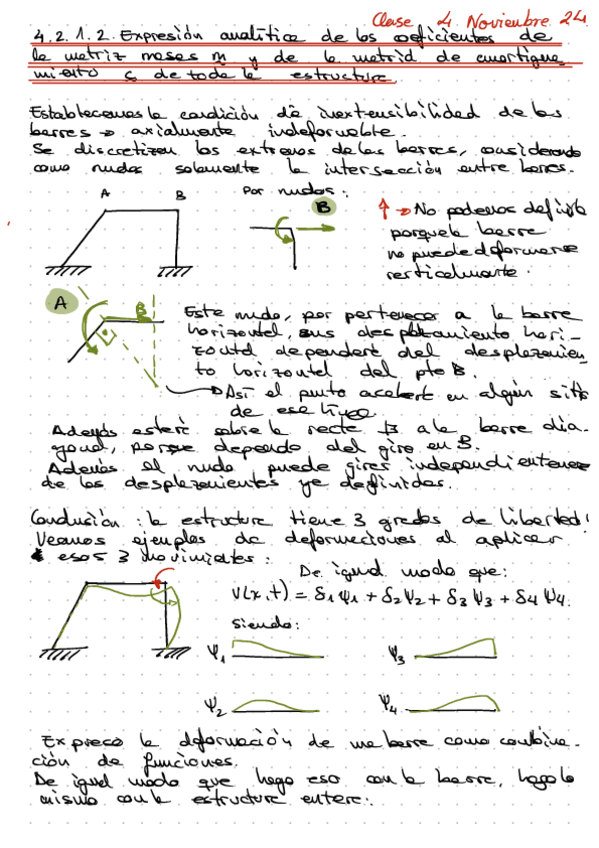 Clase 4 Noviembre 24
4.2.1.2. Expresión analítica de los coeficientes de
la matriz masas m y de la matriz de amortigua
miento c de toda la estructura
Establecemos la condición de inextensibilidad de las
barras → axialmente indeformable.
Se discretizan los extremos de las barras, considerando
como nudos solamente la intersección entre barras.
A B Por nudos:
B
↑ → No podemos definirlo
porque la barra
no puede deformarse
verticalmente.
A B
Este nudo, por pertenecer a la barra
horizontal, sus desplazamiento hori-
zontal dependerá del desplazamien
to horizontal del pto B.
→ Así el punto acabará en algún sitio
de esa línea
Además estará sobre la recta ⊥ a la barra dia-
gonal, porque depende del giro en B.
Además el nudo puede girar independientemente
de los desplazamientos ya definidos.
Conclusión: la estructura tiene 3 grados de libertad!
Veamos ejemplos de deformaciones al aplicar
esos 3 movimientos:
De igual modo que:
v(x,t) = δ1 ψ1 + δ2 ψ2 + δ3 ψ3 + δ4 ψ4.
siendo:
ψ1 ψ3
ψ2 ψ4
Expreso la deformación de una barra como combina-
ción de funciones.
De igual modo que hago eso con la barra, hago lo
mismo con la estructura entera: